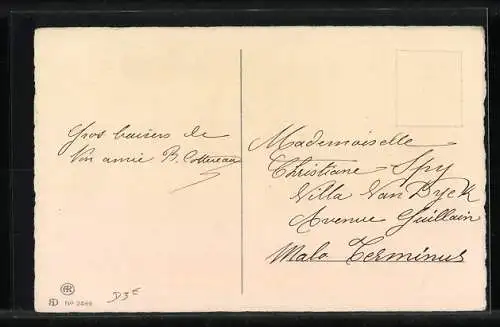 Gros baisers de
ton amie B. Cottereau
Mademoiselle
Christiane Spy
Villa Van Dyck
Avenue Guillain
Malo Terminus
No 2846
D3E